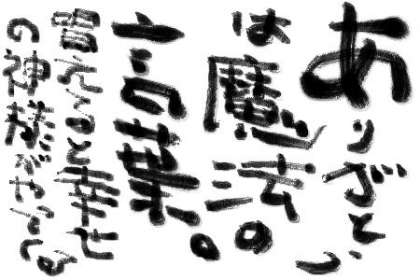 ありがとう
は魔法の
言葉。
唱えると幸せ
の神様がやってくる